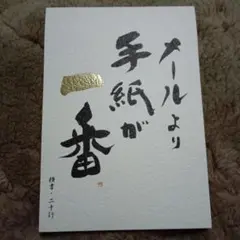 メールより
手紙が
一番